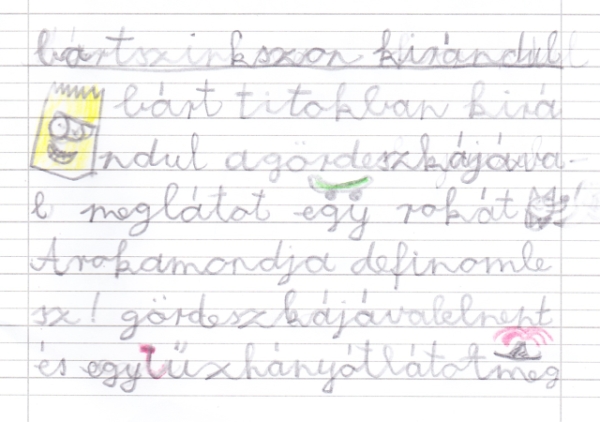 bártszinkszon kirándul
bárt titokban kirá
ndul agördeszkájáva-
l meglátot egy rokát
Arokamondja definomle
sz! gördeszkájávalelment
és egytűzhányótlátotmeg